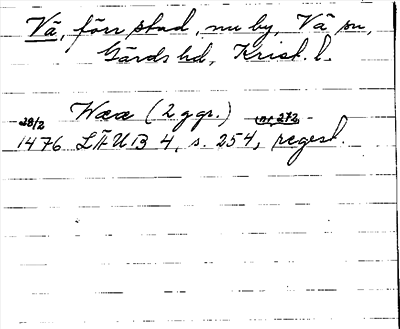 Vä, förr stad, nu by, Vä sn,
Gärds hd, Krist. l.
Wææ (2 ggr.) (nr 272)
28/2
1476 LÄUB 4, s. 254, regest.